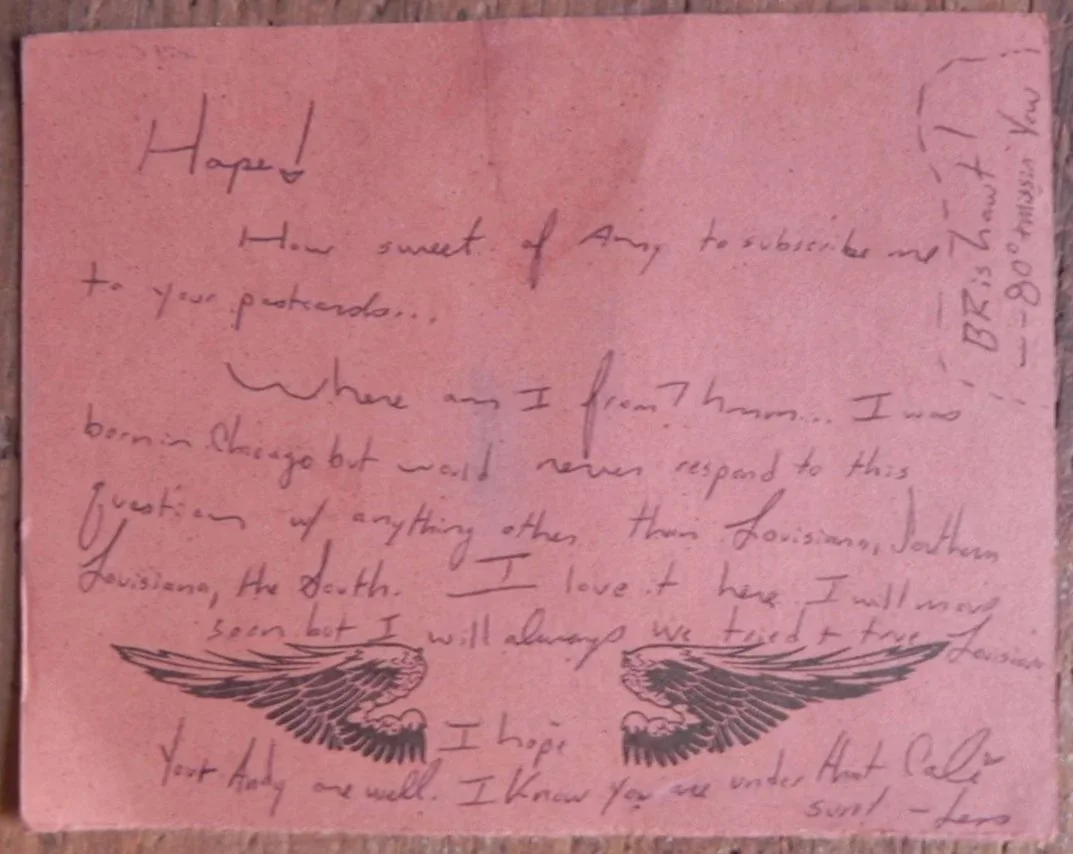 Hope!
How sweet of Amy to subscribe me
to your postcards...
Where am I from? hmm... I was
born in Chicago but would never respond to this
question w/ anything other than Louisiana, Southern
Louisiana, the South. I love it here. I will move
soon but I will always be tried & true Louisian
I hope
You & Andy are well. I know you are under that Cali
sun! - Lens
BR is hawt!
--80° + missin You